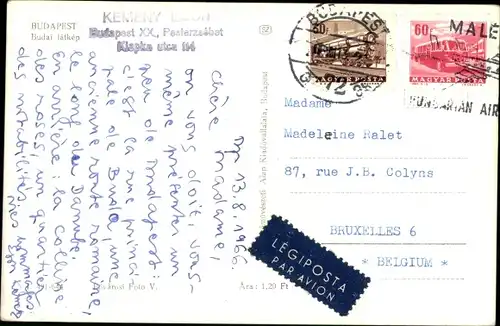 BUDAPEST
Budai látkép
KEMÉNY
Budapest XX., Pesterzsébet
Klapka utca
BUDAPEST
60f
MAGYAR POSTA
60f
MAGYAR POSTA
MALE
HUNGARIAN AIR
Bp 13.8.1966.
Chère Madame,
on vous doit, vous-
même présenter un
peu de Budapest:
c'est la rue princi-
pale de Buda, une
ancienne route romaine,
le long du Danube.
En arrière: la colline
des roses, un quartier
des notabilités.
mes hommages
Madame
Madeleine Ralet
87, rue J.B. Colyns
BRUXELLES 6
* BELGIUM *
LÉGIPOSTA
PAR AVION
Foto V.
Ára: 1,20 Ft
Művészeti Alap Kiadóvállalata, Budapest